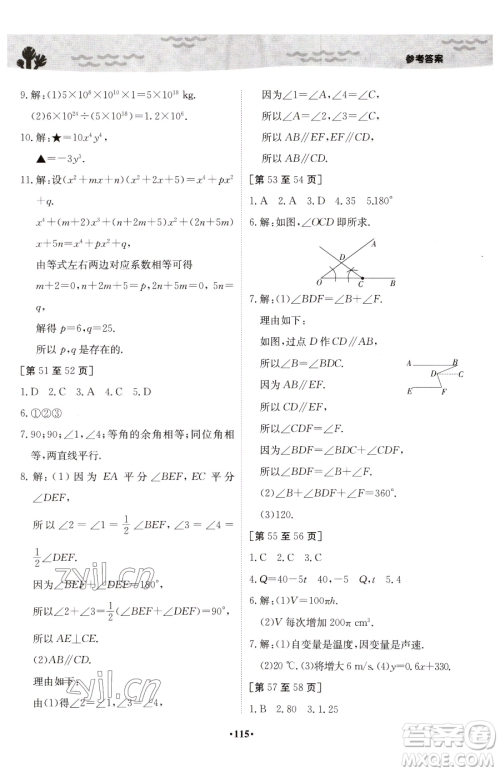 参考答案
9. 解:(1)5×10⁸×10¹⁰×1=5×10¹⁸ kg.
(2)6×10²⁴÷(5×10¹⁸)=1.2×10⁶.
10. 解:★=10x⁴y⁴.
▲=-3y³.
11. 解:设(x²+mx+n)(x²+2x+5)=x⁴+px²
+q.
x⁴+(m+2)x³+(5+2m+n)x²+(5m+
2n)x+5n=x⁴+px²+q,
由等式左右两边对应系数相等可得
m+2=0,5+2m+n=p,5m+2n=0,5n
=q,
解得 p=6,q=25.
所以 p,q 是存在的.
[第 51 至 52 页]
1. D 2. C 3. A 4. C 5. D
6. ①②③
7. 90;90;∠1,∠4;等角的余角相等;同位角相
等,两直线平行.
8. 解:(1)因为 EA 平分∠BEF,EC 平分
∠DEF,
所以∠2=∠1=1/2∠BEF,∠3=∠4=
1/2∠DEF.
因为∠BEF+∠DEF=180°,
所以∠2+∠3=1/2(∠BEF+∠DEF)=90°,
所以 AE⊥CE.
(2)AB∥EF∥CD.
理由如下:
因为∠1=∠A,∠4=∠C,
所以∠2=∠A,∠3=∠C,
所以 AB∥EF,EF∥CD,
所以 AB∥EF∥CD.
[第 53 至 54 页]
1. A 2. A 3. D 4. 35 5. 180°
6. 解:如图,∠OCD 即为所求.
A
D
O C B
7. 解:(1)∠BDF=∠B+∠F.
理由如下:
如图,过点 D 作 CD∥AB,
所以∠B=∠BDC.
因为 AB∥EF,
所以 CD∥EF,
所以∠CDF=∠F,
所以∠BDF=∠B+∠F.
A B
D C
E F
(2)∠B+∠BDF+∠F=360°.
(3)120.
[第 55 至 56 页]
1. C 2. B 3. C 4. Q=40-5t 5. 4
6. 解:(1)V=100πh.
(2)V 每次增加 200π cm³.
7. 解:(1)自变量是温度,因变量是声速.
(2)20 ℃. (3)将增大 6 m/s. (4)v=0.6x+330.
[第 57 至 58 页]
1. B 2. 80 3. 1.25
zyjl.cn
zyjl.cn
·115·